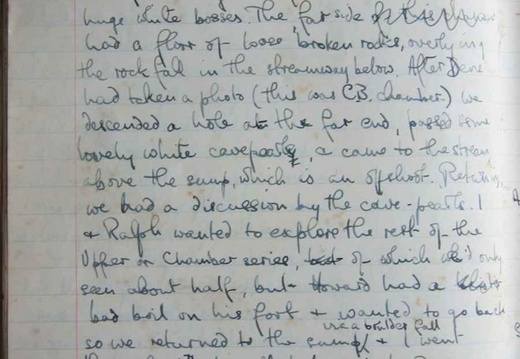 huge white bosses. The far side of this
had a floor of loose broken rocks, overlying
the rock fall in the streamway below. After Dene
had taken a photo (this was C.B. chamber) we
descended a hole at the far end, passed some
lovely white cave pearls, & came to the stream
above the sump, which is an offshoot. Returning,
we had a discussion by the cave-pearls. I
& Ralph wanted to explore the rest of the
Upper or Chamber series, of which we'd only
seen about half, but Howard had a
bad boil on his foot & wanted to go back
via a boulder fall
so we returned to the sump & I went